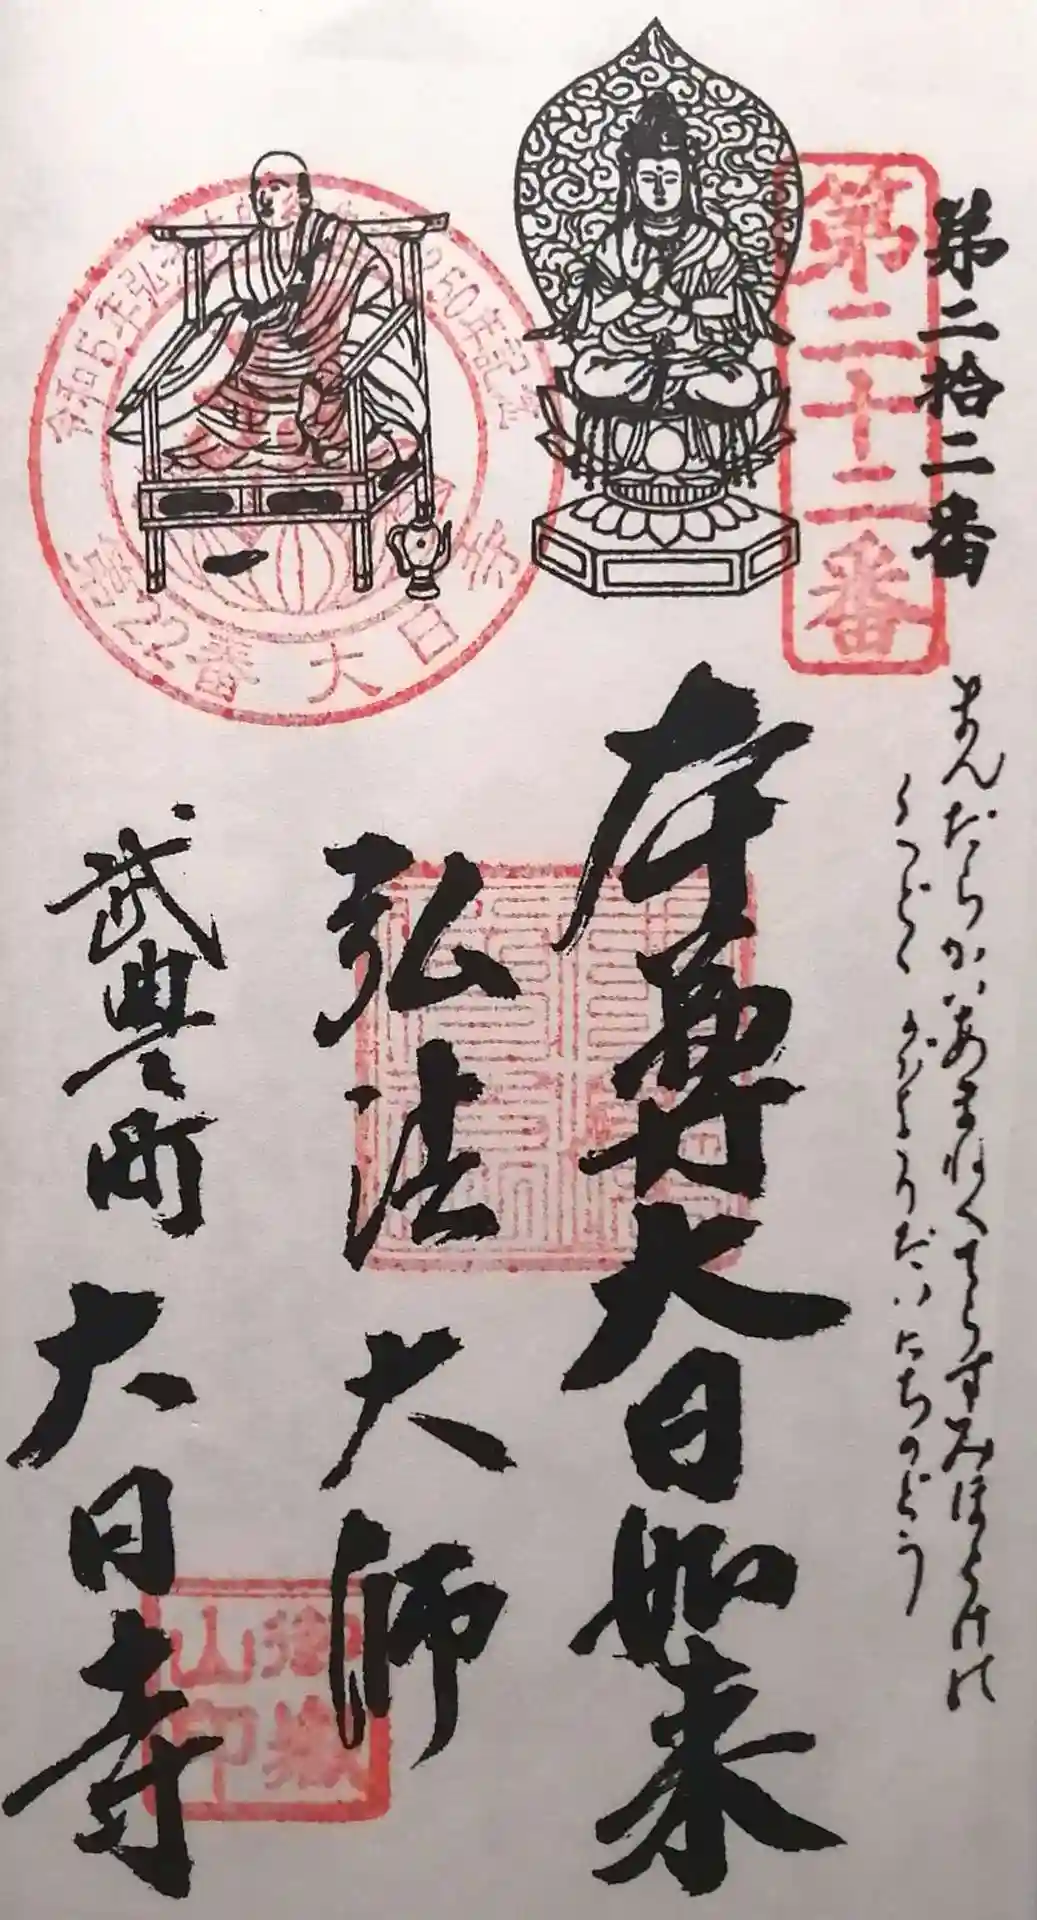 第二拾二番
第二十二番
まんだらかいあまねくてらすみほとけの
くどくがまうりだいにちのどう
本尊大日如来
弘法大師
武豊町
大日寺
令和5年弘法大師 1250年記念
第22番 大日寺
御嶽
山印